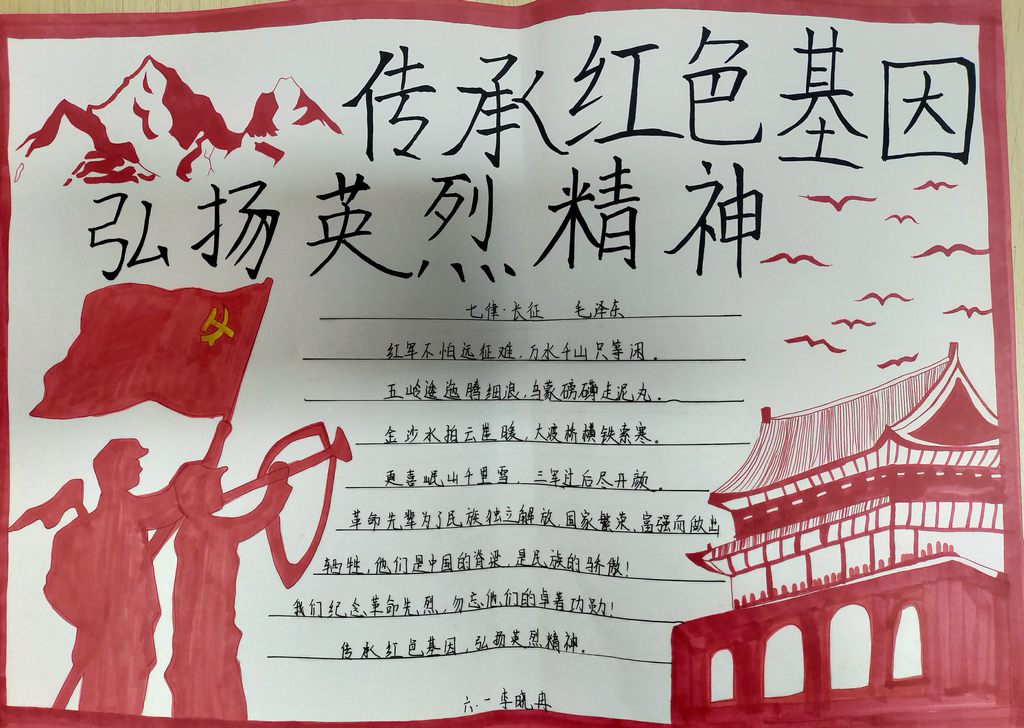 传承红色基因
弘扬英烈精神
七律·长征 毛泽东
红军不怕远征难,万水千山只等闲。
五岭逶迤腾细浪,乌蒙磅礴走泥丸。
金沙水拍云崖暖,大渡桥横铁索寒。
更喜岷山千里雪,三军过后尽开颜。
革命先辈为了民族独立解放,国家繁荣,富强而做出
牺牲,他们是中国的脊梁,是民族的骄傲!
我们纪念革命先烈,勿忘他们的卓著功勋!
传承红色基因,弘扬英烈精神。
六.一 李晓冉